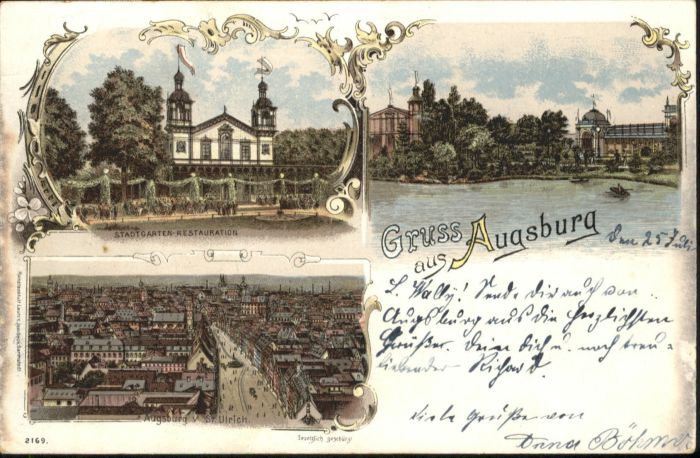 STADTGARTEN-RESTAURATION
Gruss
aus Augsburg
Den 25 Juli
L. Wally! Sende Dir auch von
Augsburg aus die herzlichsten
Grüßer. Deine dich u. noch treu-
liebender Richard.
Viele Grüße von
Anna Böhm
Augsburg v. St. Ulrich.
2169.
Gesetzlich geschützt